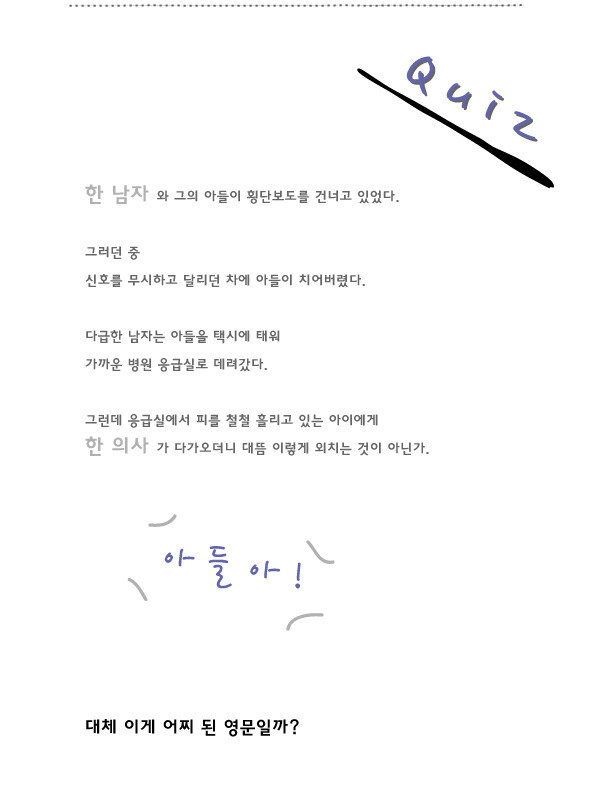 Quiz
한 남자 와 그의 아들이 횡단보도를 건너고 있었다.
그러던 중
신호를 무시하고 달리던 차에 아들이 치어버렸다.
다급한 남자는 아들을 택시에 태워
가까운 병원 응급실로 데려갔다.
그런데 응급실에서 피를 철철 흘리고 있는 아이에게
한 의사 가 다가오더니 대뜸 이렇게 외치는 것이 아닌가.
아들아!
대체 이게 어찌 된 영문일까?